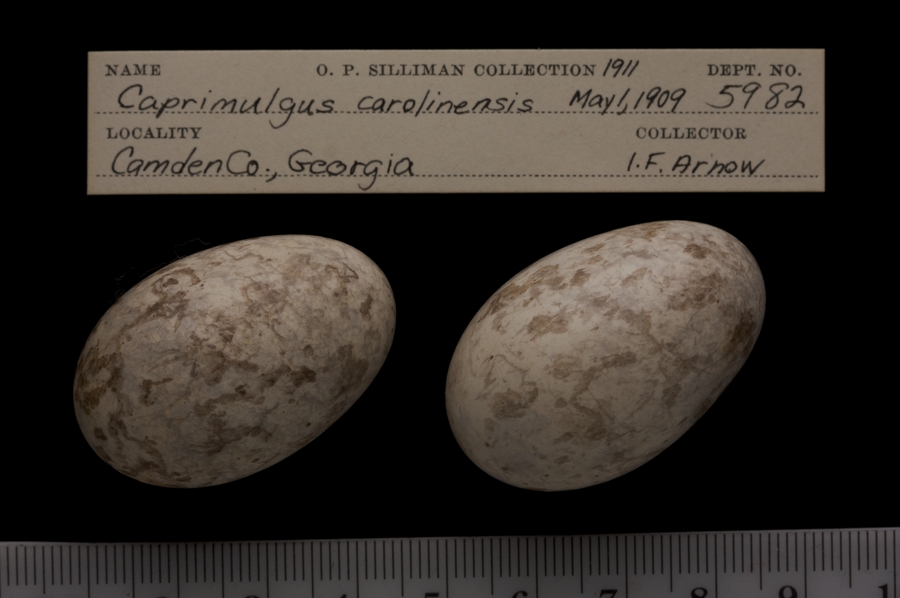 NAME O. P. SILLIMAN COLLECTION 1911 DEPT. NO.
Caprimulgus carolinensis May 1, 1909 5982
LOCALITY COLLECTOR
Camden Co., Georgia I. F. Arnow
2 3 4 5 6 7 8 9 1